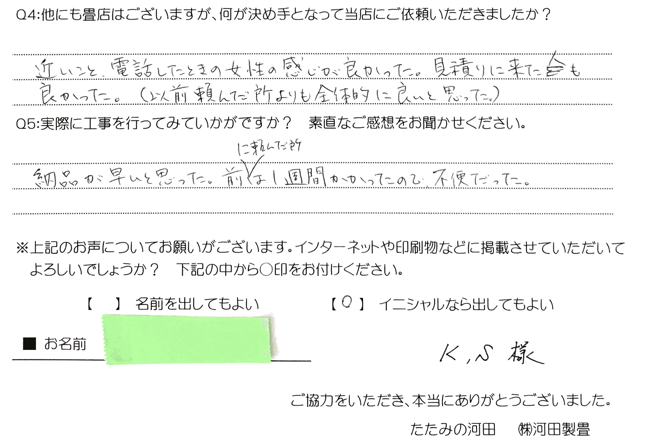 Q4:他にも畳店はございますが、何が決め手となって当店にご依頼いただきましたか?
近いこと、電話したときの女性の感じが良かった。見積りに来た も
良かった。(以前頼んだ所よりも全体的に良いと思った。)
Q5:実際に工事を行ってみていかがですか? 素直なご感想をお聞かせください。
に頼んだ所
納品が早いと思った。前は1週間かかったので、不便だった。
※上記のお声についてお願いがございます。インターネットや印刷物などに掲載させていただいて
よろしいでしょうか? 下記の中から○印をお付けください。
【 】 名前を出してもよい 【○】 イニシャルなら出してもよい
■ お名前 K,S 様
ご協力をいただき、本当にありがとうございました。
たたみの河田 ㈱河田製畳